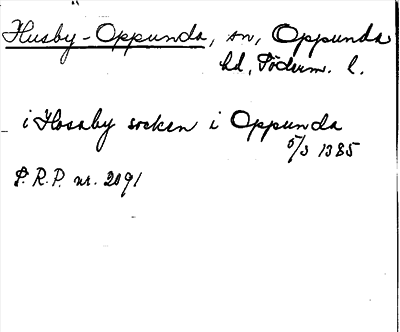 Husby-Oppunda, sn, Oppunda
hd, Söderm. l.
i Hosaby socken i Oppunda
5/3 1385
P.R.P. nr. 2091